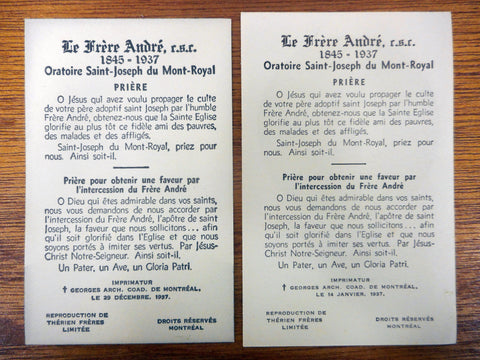 Le Frère André, c.s.c.
1845 - 1937
Oratoire Saint-Joseph du Mont-Royal
PRIÈRE
O Jésus qui avez voulu propager le culte
de votre père adoptif saint Joseph par l'humble
Frère André, obtenez-nous que la Sainte Eglise
glorifie au plus tôt ce fidèle ami des pauvres,
des malades et des affligés.
Saint-Joseph du Mont-Royal, priez pour
nous. Ainsi soit-il.
Prière pour obtenir une faveur par
l'intercession du Frère André
O Dieu qui êtes admirable dans vos saints,
nous vous demandons de nous accorder par
l'intercession du Frère André, l'apôtre de saint
Joseph, la faveur que nous sollicitons... afin
qu'il soit glorifié dans l'Eglise et que nous
soyons portés à imiter ses vertus. Par Jésus-
Christ Notre-Seigneur. Ainsi soit-il.
Un Pater, un Ave, un Gloria Patri.
IMPRIMATUR
† GEORGES ARCH. COAD. DE MONTRÉAL,
LE 29 DÉCEMBRE. 1937.
REPRODUCTION DE
THÉRIEN FRÈRES
LIMITÉE
DROITS RÉSERVÉS
MONTRÉAL
Le Frère André, c.s.c.
1845 - 1937
Oratoire Saint-Joseph du Mont-Royal
PRIÈRE
O Jésus qui avez voulu propager le culte
de votre père adoptif saint Joseph par l'humble
Frère André, obtenez-nous que la Sainte Eglise
glorifie au plus tôt ce fidèle ami des pauvres,
des malades et des affligés.
Saint-Joseph du Mont-Royal, priez pour
nous. Ainsi soit-il.
Prière pour obtenir une faveur par
l'intercession du Frère André
O Dieu qui êtes admirable dans vos saints,
nous vous demandons de nous accorder par
l'intercession du Frère André, l'apôtre de saint
Joseph, la faveur que nous sollicitons... afin
qu'il soit glorifié dans l'Eglise et que nous
soyons portés à imiter ses vertus. Par Jésus-
Christ Notre-Seigneur. Ainsi soit-il.
Un Pater, un Ave, un Gloria Patri.
IMPRIMATUR
† GEORGES ARCH. COAD. DE MONTRÉAL,
LE 14 JANVIER. 1937.
REPRODUCTION DE
THÉRIEN FRÈRES
LIMITÉE
DROITS RÉSERVÉS
MONTRÉAL